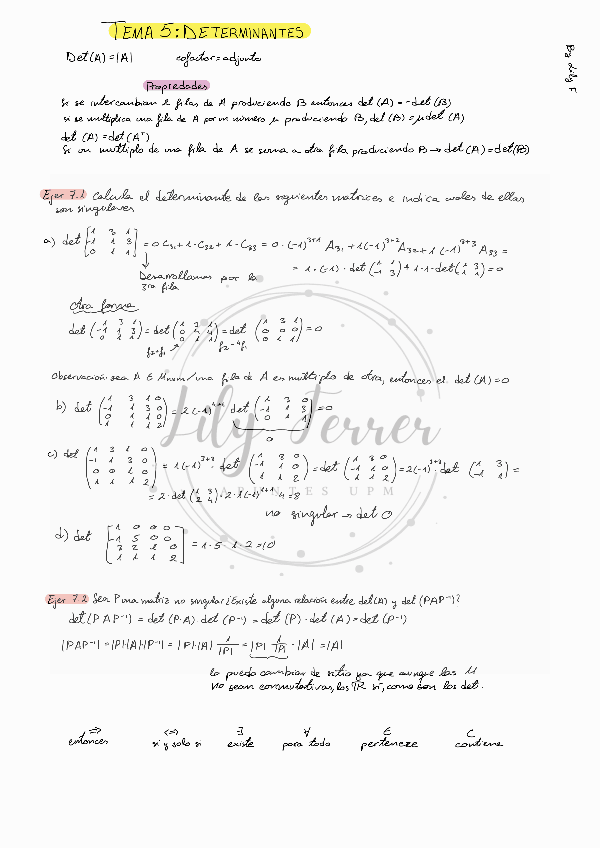 TEMA 5: DETERMINANTES
By Lily F
Det(A) = |A| cofactor = adjunto
Propiedades
Si se intercambian 2 filas de A produciendo B entonces det (A) = - det (B)
si se multiplica una fila de A por un número μ produciendo B, det (B) = μ det (A)
det (A) = det (Aᵀ)
Si un multiplo de una fila de A se suma a otra fila produciendo B → det (A) = det(B)
Ejer 7.1 Calcula el determinante de las siguientes matrices e indica cuales de ellas
son singulares
a) det [1 3 1; -1 1 3; 0 1 1] = 0 C₃₁ + 1·C₃₂ + 1·C₃₃ = 0·(-1)³⁺¹ A₃₁ + 1(-1)³⁺² A₃₂ + 1(-1)³⁺³ A₃₃ =
= 1·(-1)·det (1 1; -1 3) + 1·1·det (1 3; -1 1) = 0
Desarrollamos por la
3ra fila
Otra forma
det (1 3 1; -1 1 3; 0 1 1) = det (1 3 1; 0 4 4; 0 1 1) = det (1 3 1; 0 0 0; 0 1 1) = 0
f₂+f₁ f₂-4f₃
Observación: sea A ∈ Mnxm / una fila de A es multiplo de otra, entonces el det (A) = 0
b) det (1 3 1 0; -1 1 3 0; 0 1 1 0; 1 1 1 2) = 2(-1)⁴⁺⁴ det (1 3 0; -1 1 3; 0 1 1) = 0
0
Lily Ferrer
APUNTES UPM
c) det (1 3 1 0; -1 1 3 0; 0 0 1 0; 1 1 1 2) = 1(-1)³⁺³·det (1 3 0; -1 1 0; 1 1 2) = det (1 3 0; -1 1 0; 1 1 2) = 2(-1)³⁺³·det (1 3; -1 1) =
= 2·det (1 3; 2 4) = 2·1(-1)¹⁺¹·4 = 8
no singular → det 0
d) det [1 0 0 0; -1 5 0 0; 3 2 1 0; 1 1 1 2] = 1·5·1·2 = 10
Ejer 7.2 Sea P una matriz no singular ¿Existe alguna relación entre det(A) y det (PAP⁻¹)?
det (P A P⁻¹) = det (P·A)·det (P⁻¹) = det (P)·det (A) = det (P⁻¹)
|PAP⁻¹| = |P||A||P⁻¹| = |P||A| 1/|P| = |P| 1/|P| · |A| = |A|
lo puedo cambiar de sitio ya que aunque las M
no sean conmutativas, los R sí, como son los det.
⇒ ⇔ ∃ ∀ ∈ ⊂
entonces si y solo si existe para todo pertenece contiene